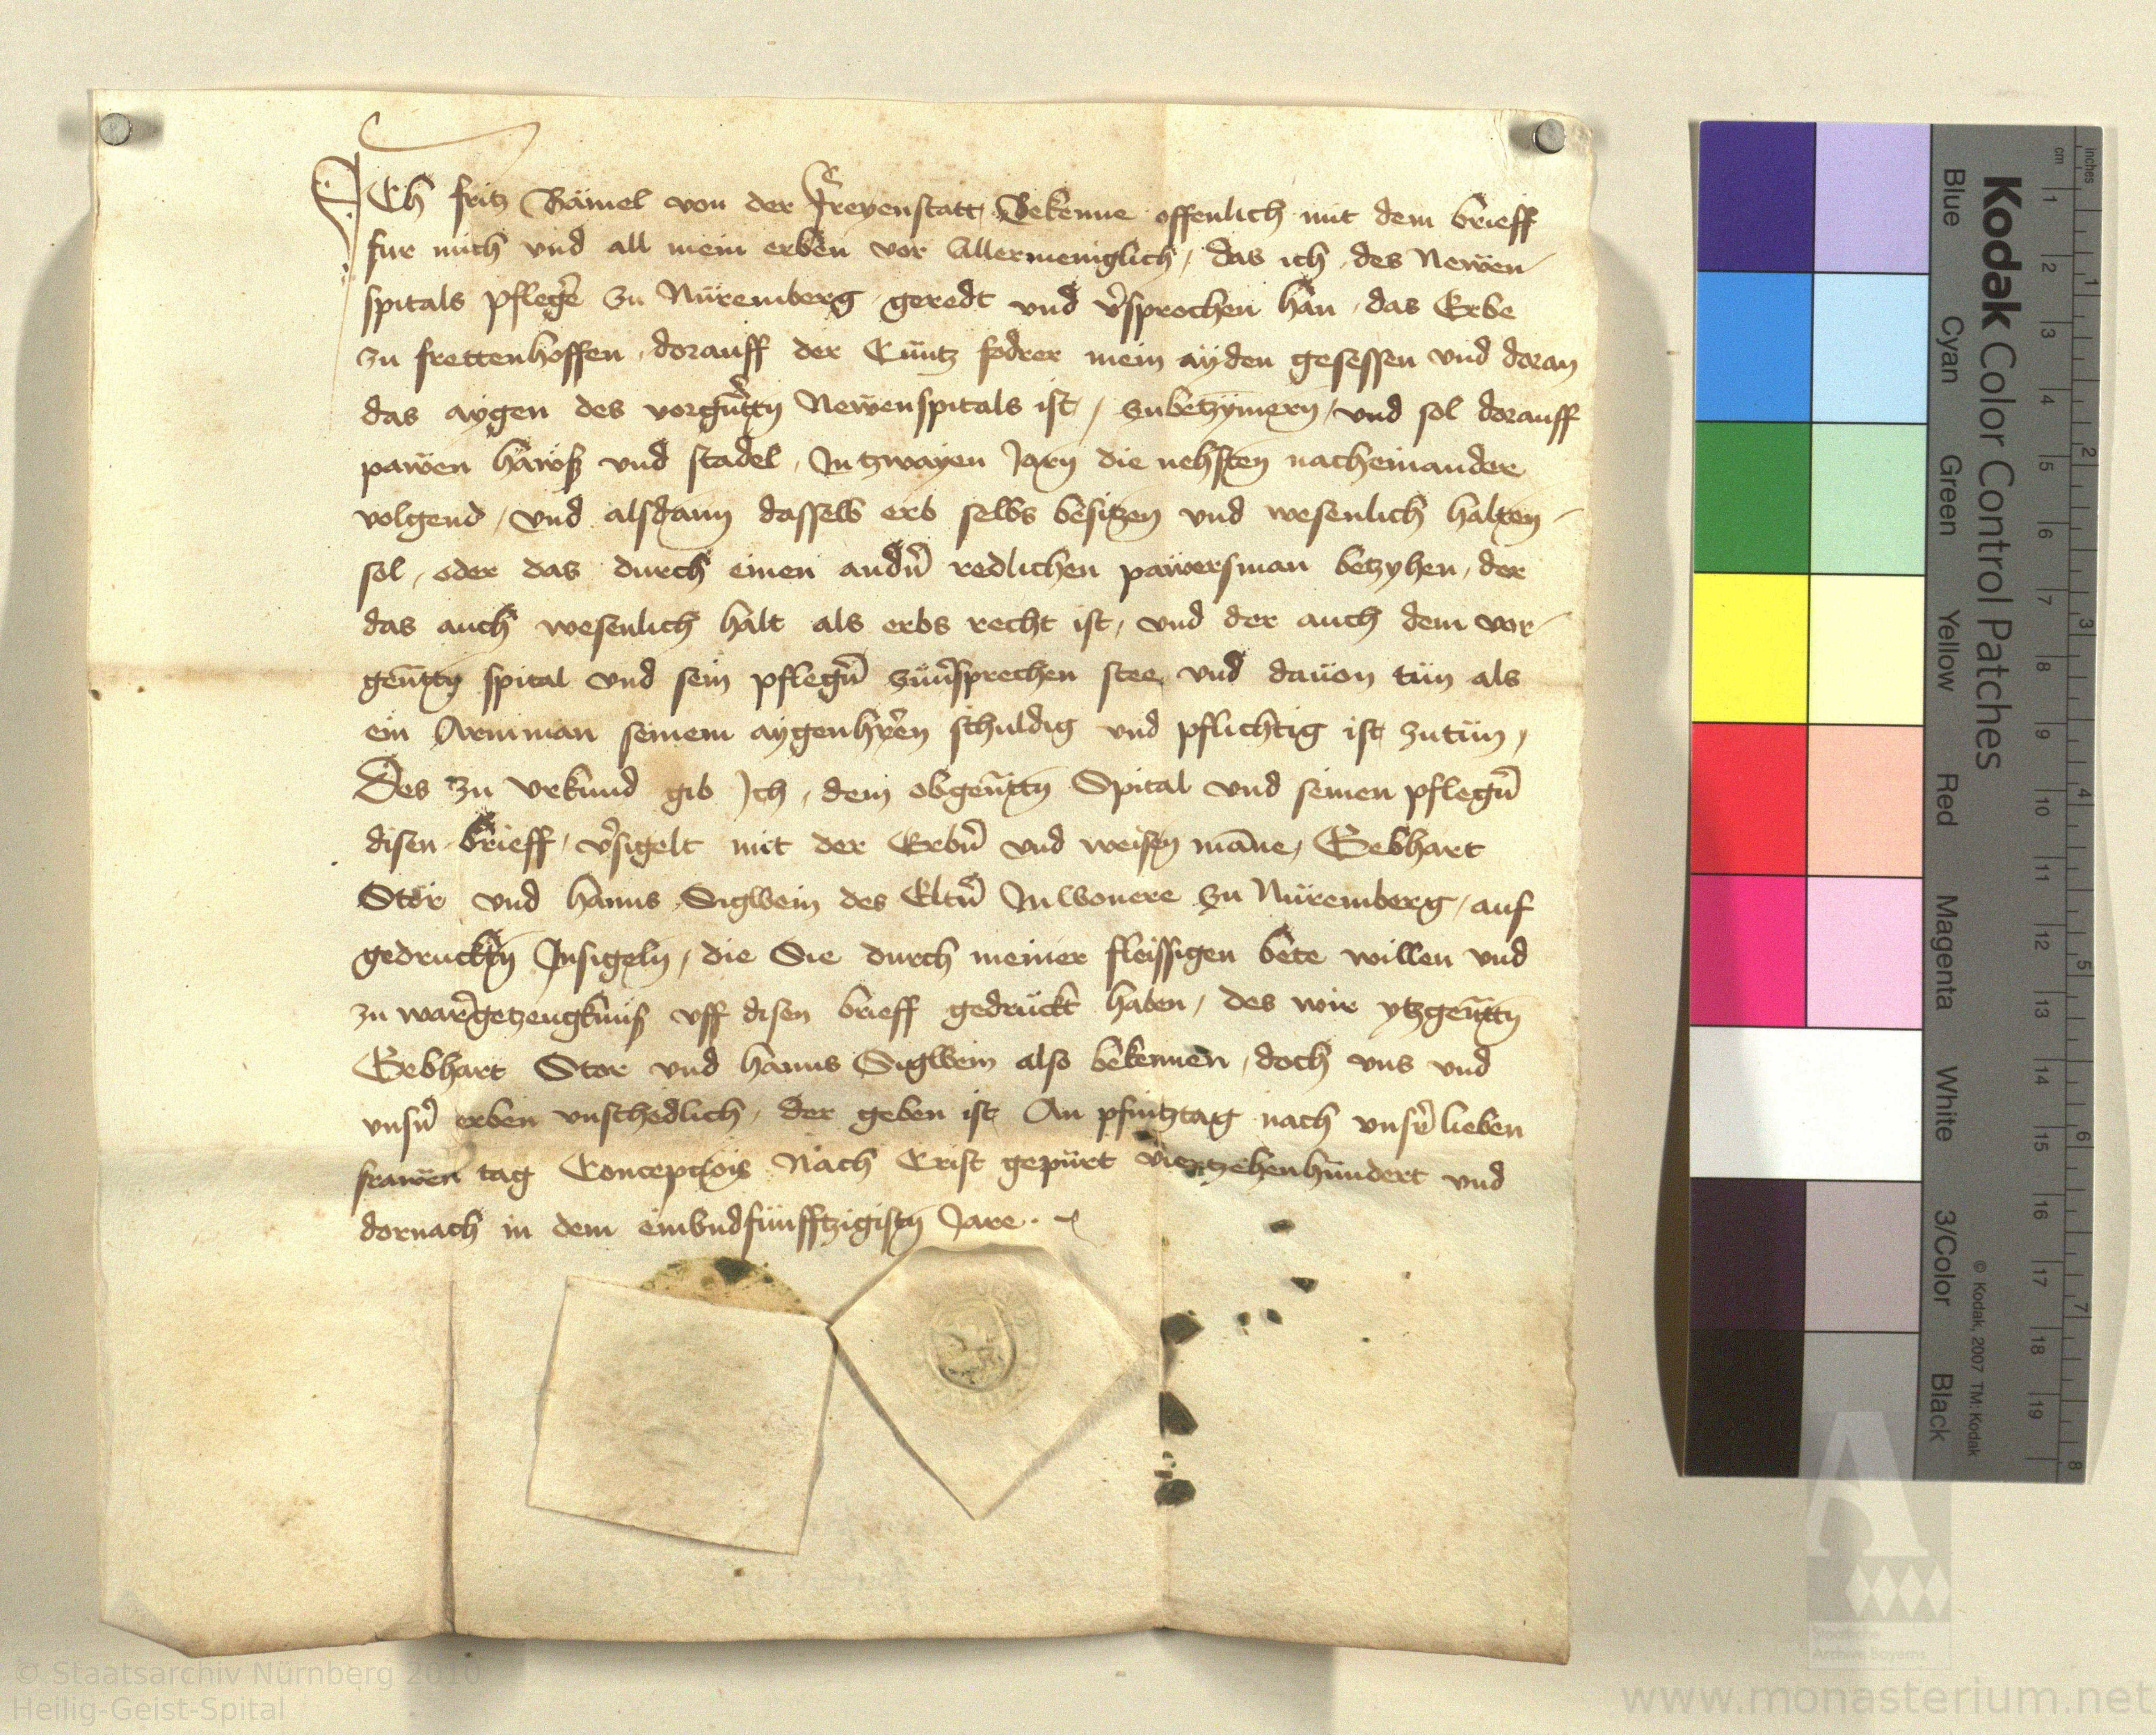 ICh fritz Bämel von der Freyenstatt Bekenne offenlich mit dem brieff
fur mich vnd all mein erben vor Allermeniglich / das ich des Newen
spitals pfleg̃ zu Nüremberg geredt vnd v̉sprochen han / das Erbe
zu frettenhoffen / dorauff der Cuntz fodrer mein ayden gesessen vnd doran
das aygen des vorgñtñ Newenspitals ist / zubetzymern / vnd sol dorauff
pawen hawß vnd stadel / In tzwayen Jarn die nehsten nacheinander
volgend / vnd alsdann dasselb erb selbs besitzen vnd wesenlich halten
sol / oder das durch einen andñ redlichen pawersman betzyhen / der
das auch wesenlich halt als erbs recht ist / vnd der auch dem vor
geñtñ spital vnd sein pflegñ zuũsprechen stee vnd dauon tün als
ein Armman seinem aygenhr̃en schuldig vnd pflichtig ist zutün /
Des zu vrkund gib Ich / dem obgeñtñ Spital vnd seinen pflegñ
disen brieff / v̉sigelt mit der Erbñ vnd weisen mãne / Gebhart
Stör vnd hanns Siglwein des Eltñ Inwonere zu Nüremberg / auf
gedruckten Insigeln / die Sie durch meiner fleissigen bete willen vnd
zu war̃ getzeugknüß vff disen brieff gedruckt haben / des wir ytzgeñtñ
Gebhart Stor vnd hanns Siglwein also bekennen / doch vns vnd
vnsñ erben vnschedlich / der geben ist An pfintztag nach vnsr̃ lieben
frawen tag Concepcõis Nach Crist gepürt viertzehenhundert vnd
dornach in dem einvndfünfftzigistñ Jare.
Kodak Color Control Patches
Blue Cyan Green Yellow Red Magenta White 3/Color Black
© Kodak, 2007 TM: Kodak
cm 1 2 3 4 5 6 7 8 9 10 11 12 13 14 15 16 17 18 19
inches 1 2 3 4 5 6 7 8
© Staatsarchiv Nürnberg 2010
Heilig-Geist-Spital
Staatliche
Archive Bayerns
www.monasterium.net